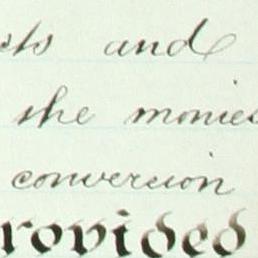 sts and
the monies
conversion
rovided